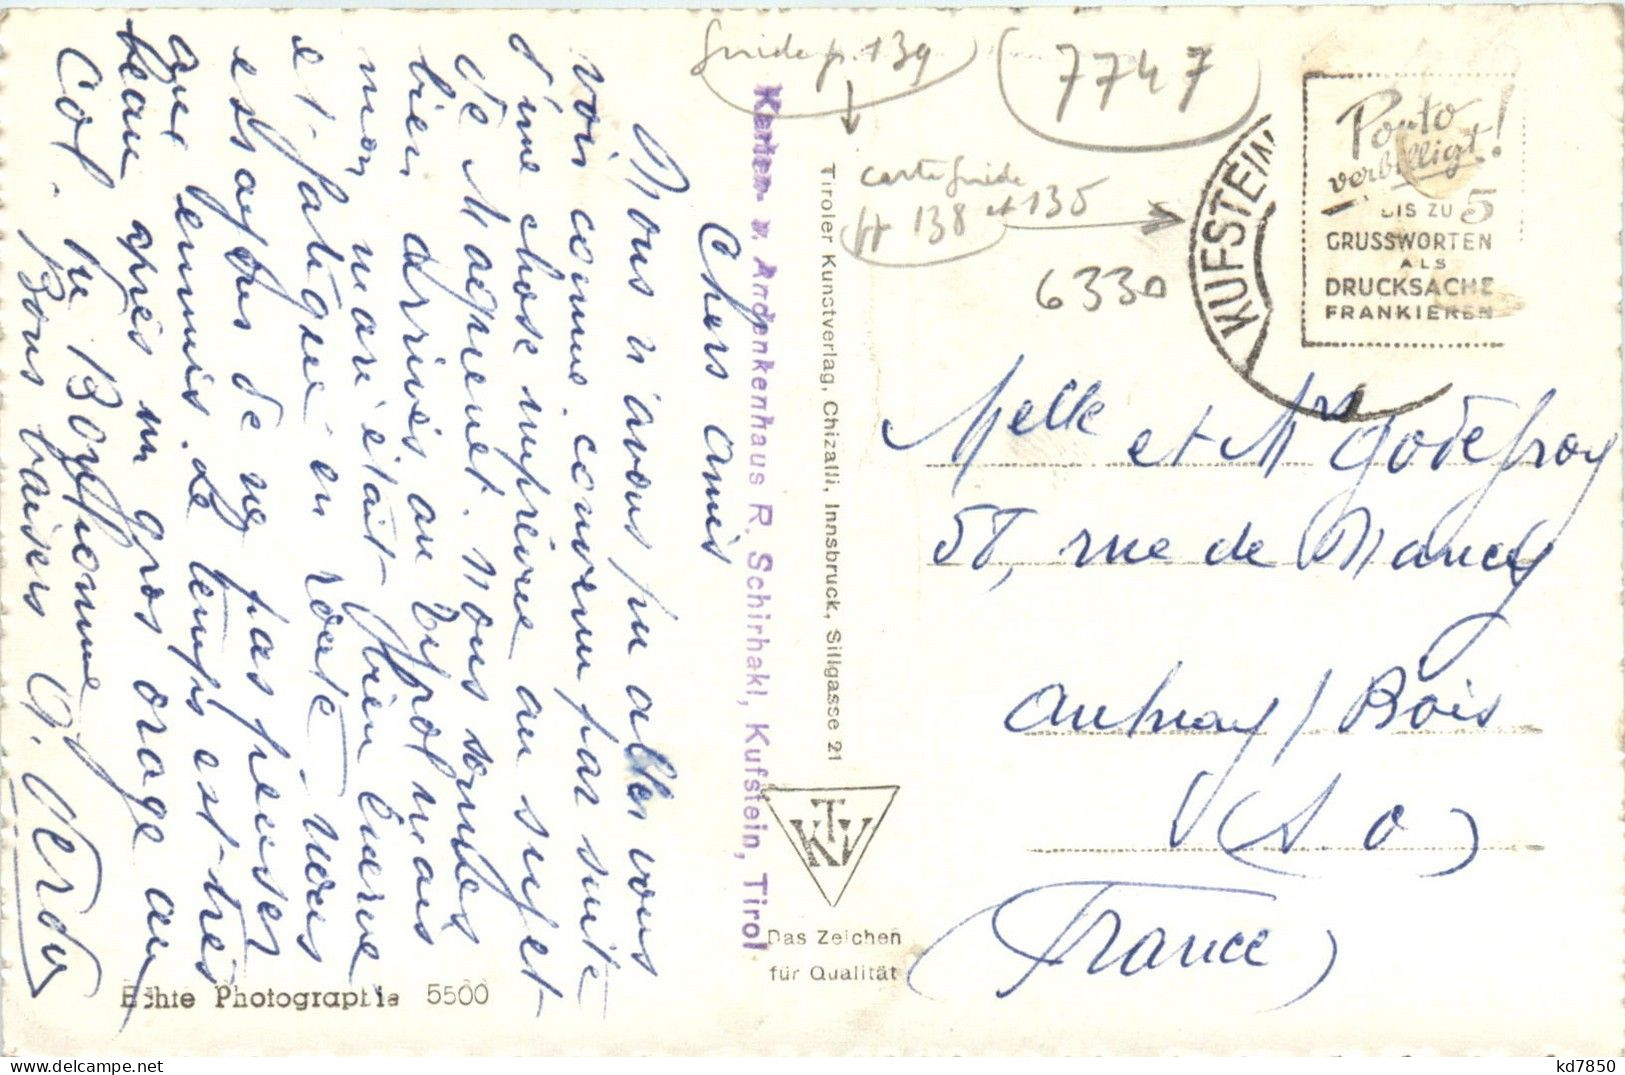 Chers amis
Nous n'avons pu aller vous
voir comme convenu par suite
d'une chose imprévue au sujet
de Magrenet. Nous sommes
bien arrivés au Typol mais
mon mari était bien énervé
et fatigué en route nous
essayons de ne pas penser
aux ennuis. Le temps est très
beau après un gros orage au
Col.
Bons baisers
G. Verdy
Echte Photographie 5500
Karten- u. Andenkenhaus R. Schirhakl, Kufstein, Tirol
Tiroler Kunstverlag, Chizalli, Innsbruck, Sillgasse 21
TKV
Das Zeichen
für Qualität
Guide p. 139
7747
carte guide
138 et 135
6330
KUFSTEIN
Porto
verbilligt!
BIS ZU 5
GRUSSWORTEN
ALS
DRUCKSACHE
FRANKIEREN
Melle et Mr Godefroy
58, rue de Nancy
Aulnay / Bois
(S. O)
(France)
delcampe.net
kd7850